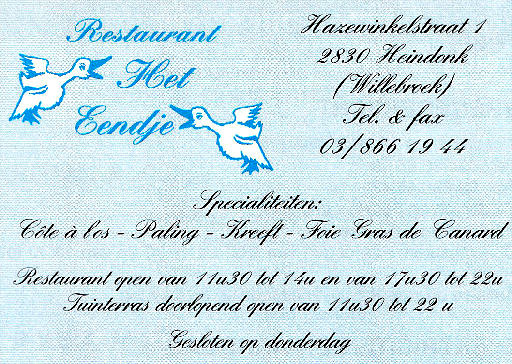 Restaurant
Het
Eendje
Hazewinkelstraat 1
2830 Heindonk
(Willebroek)
Tel. & fax
03/866 19 44
Specialiteiten:
Côte à l'os - Paling - Kreeft - Foie Gras de Canard
Restaurant open van 11u30 tot 14u en van 17u30 tot 22u
Tuinterras doorlopend open van 11u30 tot 22 u
Gesloten op donderdag